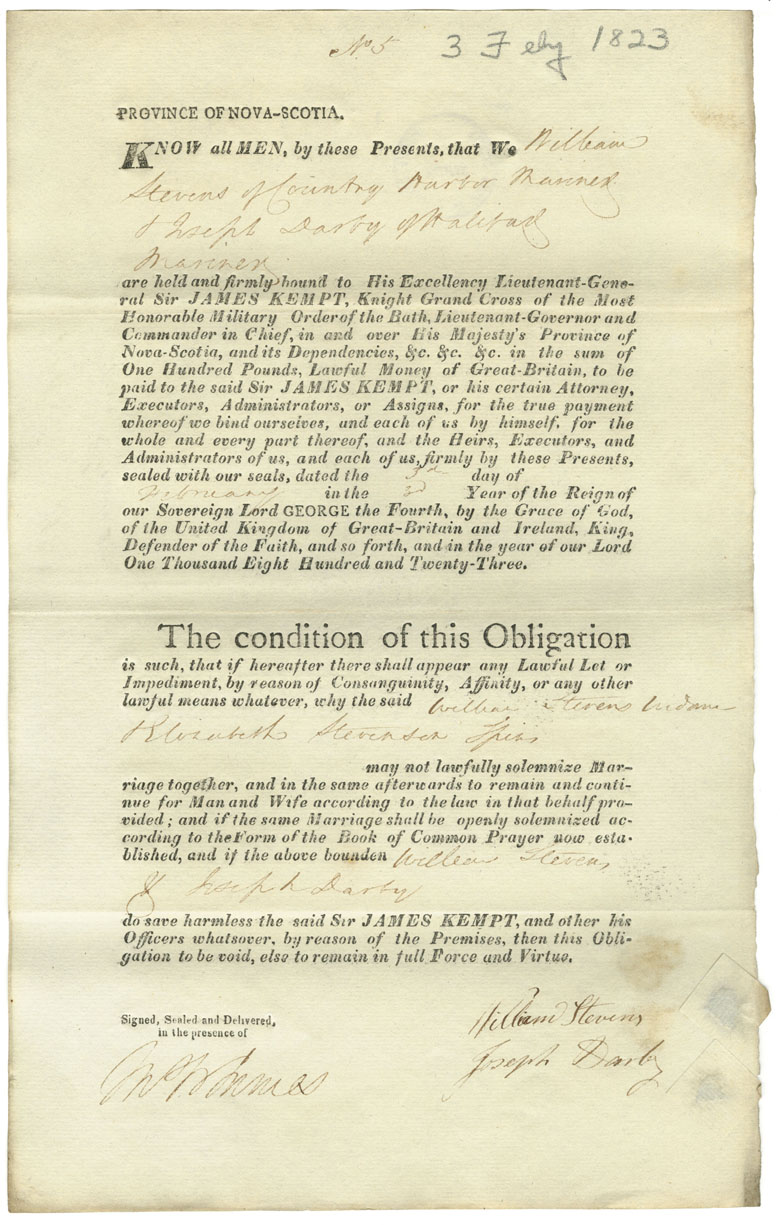 No 5 3 Feby 1823
PROVINCE OF NOVA-SCOTIA.
KNOW all MEN, by these Presents, that We William
Stevens of Country Harbor Mariner
& Joseph Darby of Halifax
Mariner
are held and firmly bound to His Excellency Lieutenant-Gene-
ral Sir JAMES KEMPT, Knight Grand Cross of the Most
Honorable Military Order of the Bath, Lieutenant-Governor and
Commander in Chief, in and over His Majesty's Province of
Nova-Scotia, and its Dependencies, &c. &c. &c. in the sum of
One Hundred Pounds, Lawful Money of Great-Britain, to be
paid to the said Sir JAMES KEMPT, or his certain Attorney,
Executors, Administrators, or Assigns, for the true payment
whereof we bind ourselves, and each of us by himself, for the
whole and every part thereof, and the Heirs, Executors, and
Administrators of us, and each of us, firmly by these Presents,
sealed with our seals, dated the day of
February in the 3d Year of the Reign of
our Sovereign Lord GEORGE the Fourth, by the Grace of God,
of the United Kingdom of Great-Britain and Ireland, King,
Defender of the Faith, and so forth, and in the year of our Lord
One Thousand Eight Hundred and Twenty-Three.
The condition of this Obligation
is such, that if hereafter there shall appear any Lawful Let or
Impediment, by reason of Consanguinity, Affinity, or any other
lawful means whatever, why the said William Stevens
& Elizabeth Stevenson
may not lawfully solemnize Mar-
riage together, and in the same afterwards to remain and conti-
nue for Man and Wife according to the law in that behalf pro-
vided; and if the same Marriage shall be openly solemnized ac-
cording to the Form of the Book of Common Prayer now esta-
blished, and if the above bounden William Stevens
& Joseph Darby
do save harmless the said Sir JAMES KEMPT, and other his
Officers whatsover, by reason of the Premises, then this Obli-
gation to be void, else to remain in full Force and Virtue.
Signed, Sealed and Delivered,
in the presence of
William Stevens
Joseph Darby